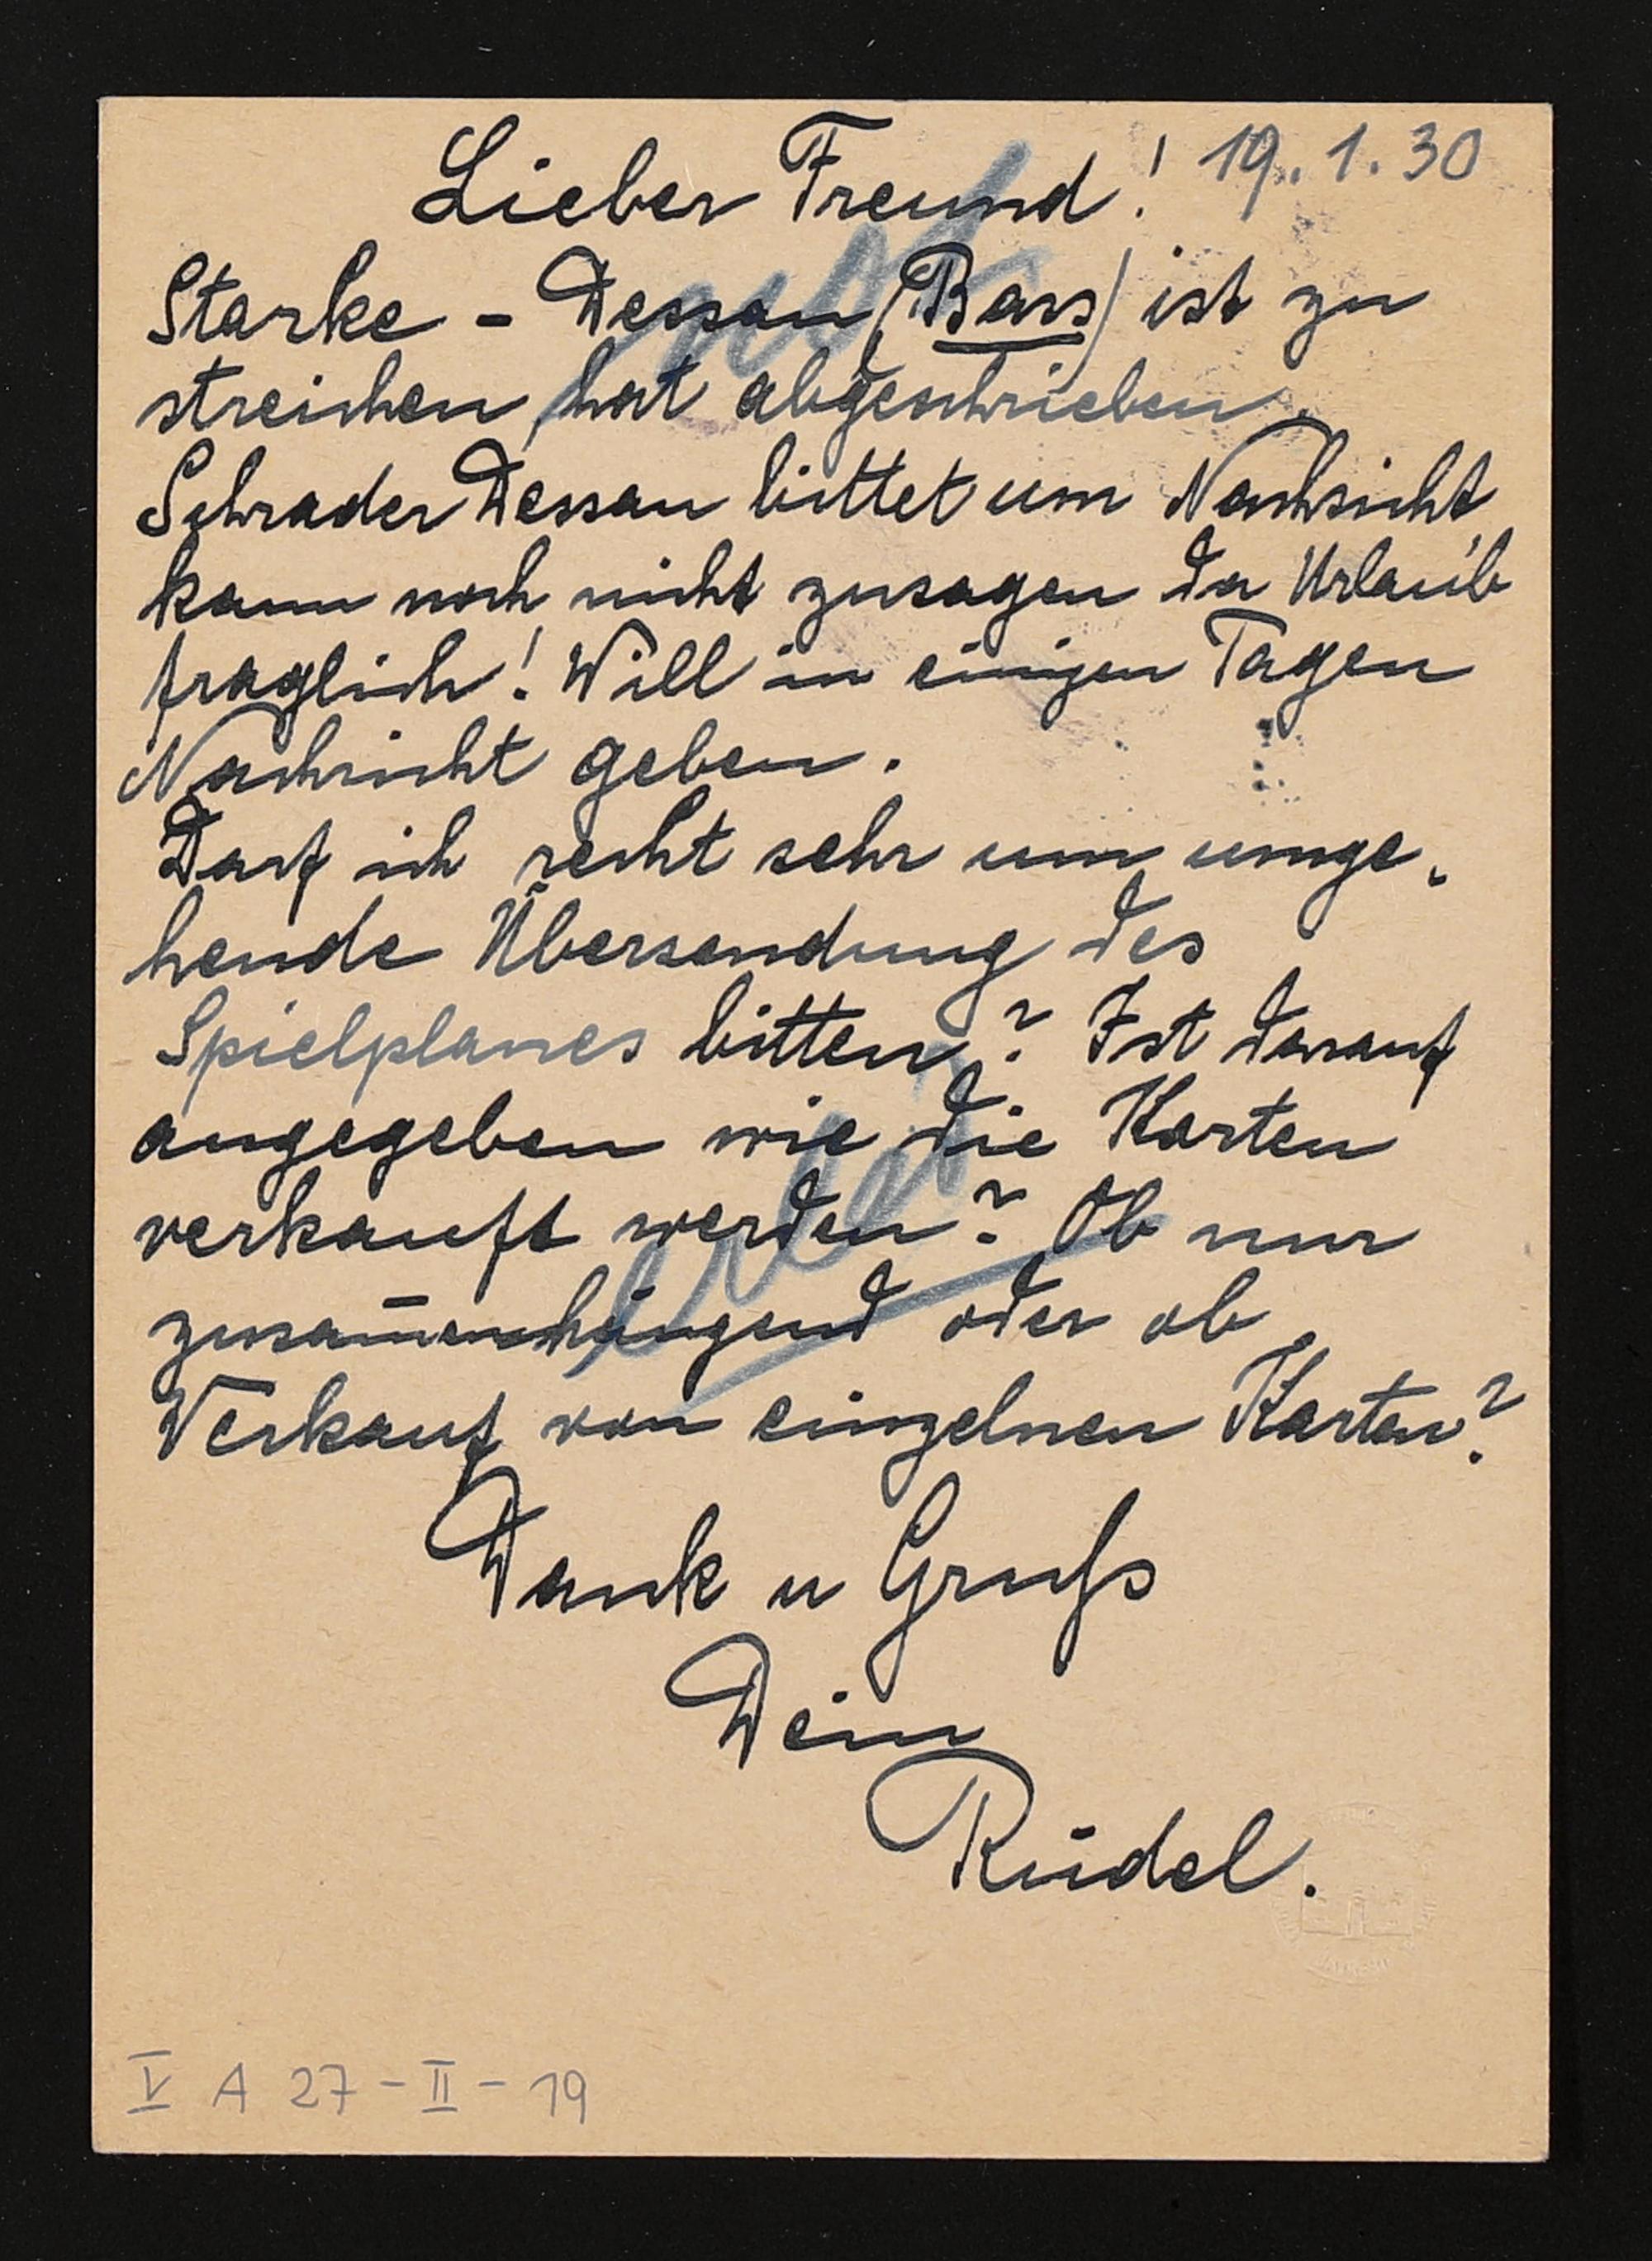 Lieber Freund! 19.1.30
Starke - Dessau (Bass) ist zu
streichen, hat abgeschrieben.
Schrader Dessau bittet um Nachsicht,
kann noch nicht zusagen da Urlaub
fraglich! Will in einigen Tagen
Nachricht geben.
Darf ich recht sehr um umge-
hende Übersendung des
Spielplanes bitten? Ist darauf
angegeben wie die Karten
verkauft werden? Ob nur
zusam̅enhängend oder ob
Verkauf von einzelnen Karten?
Dank u Gruß
Dein
Rüdel.
V A 27-II-19